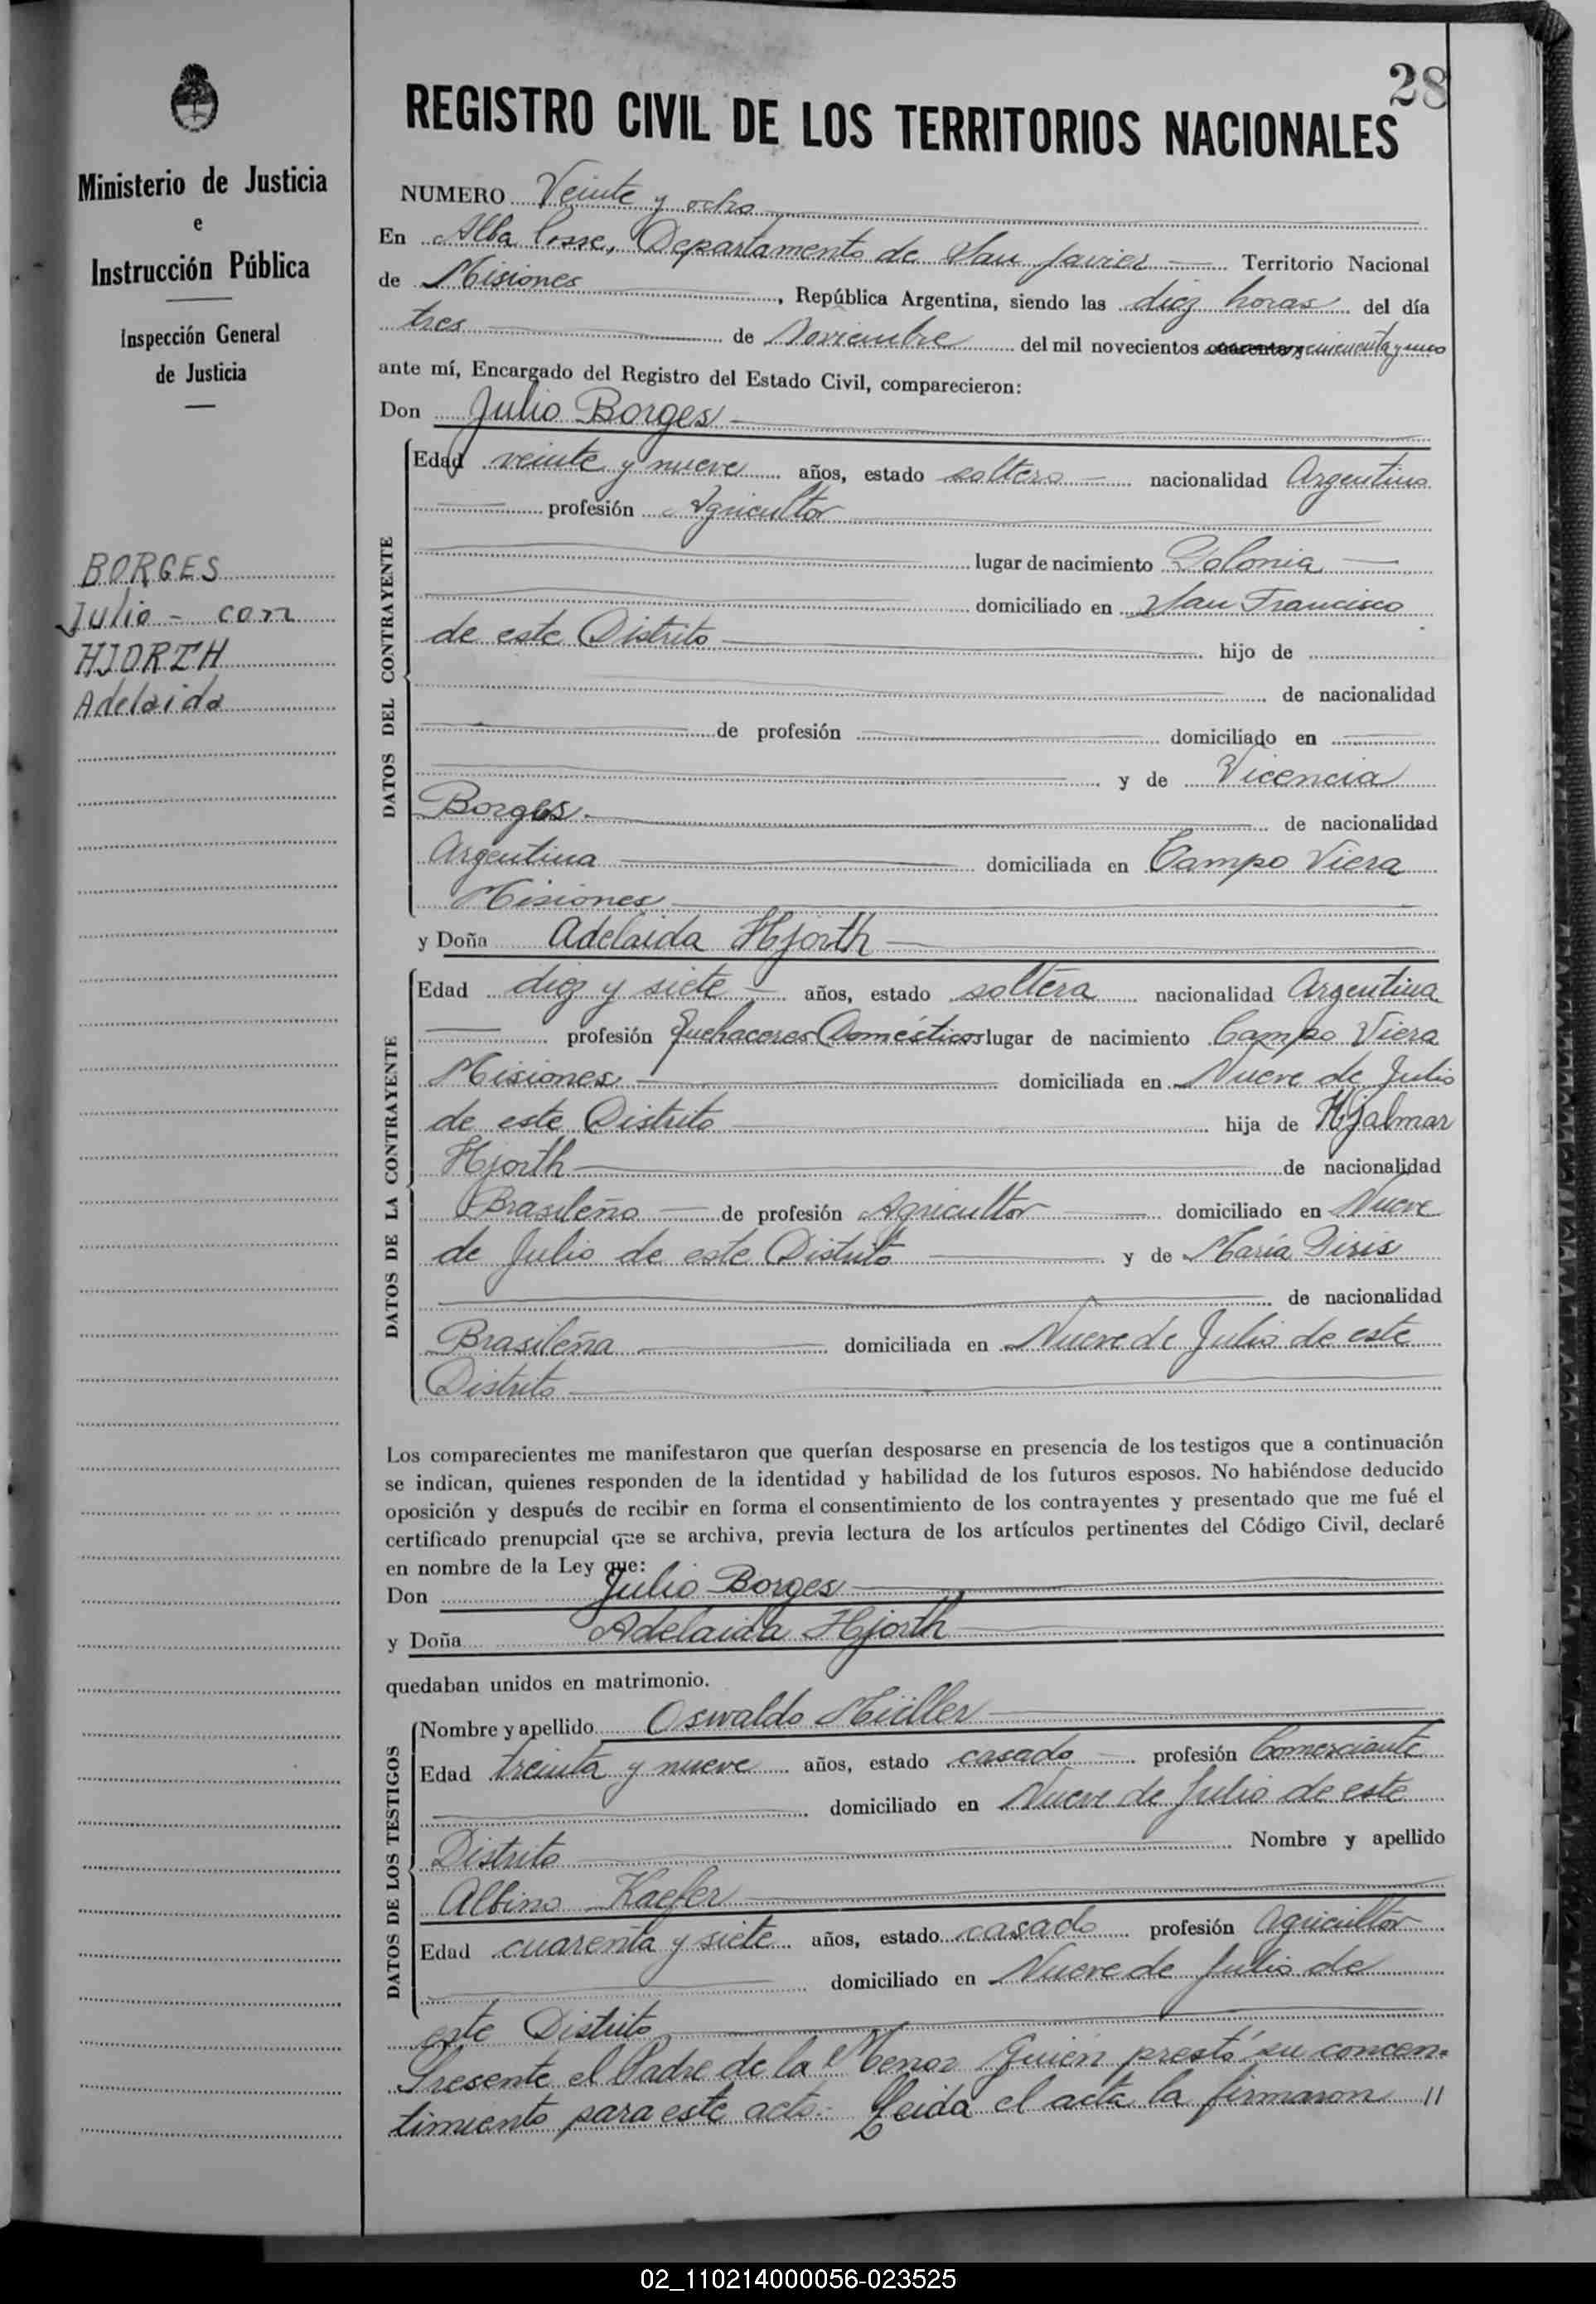 28
Ministerio de Justicia
e
Instrucción Pública
Inspección General
de Justicia
BORGES
Julio - con
HJORTH
Adelaida
REGISTRO CIVIL DE LOS TERRITORIOS NACIONALES
NUMERO Veinte y ocho
En Alba Posse, Departamento de San Javier Territorio Nacional
de Misiones, República Argentina, siendo las diez horas del día
tres de Noviembre del mil novecientos cuarenta y cincuenta y uno
ante mí, Encargado del Registro del Estado Civil, comparecieron:
Don Julio Borges
DATOS DEL CONTRAYENTE
Edad veinte y nueve años, estado soltero nacionalidad Argentino
profesión Agricultor
lugar de nacimiento Polonia
domiciliado en San Francisco
de este Distrito hijo de
de nacionalidad
de profesión domiciliado en
y de Vicencia
Borges. de nacionalidad
Argentina domiciliada en Campo Viera
Misiones
y Doña Adelaida Hjorth
DATOS DE LA CONTRAYENTE
Edad diez y siete años, estado soltera nacionalidad Argentina
profesión Quehaceres Domésticos lugar de nacimiento Campo Viera
Misiones domiciliada en Nueve de Julio
de este Distrito hija de Hjalmar
Hjorth de nacionalidad
Brasileño de profesión Agricultor domiciliado en Nueve
de Julio de este Distrito y de María
de nacionalidad
Brasileña domiciliada en Nueve de Julio de este
Distrito
Los comparecientes me manifestaron que querían desposarse en presencia de los testigos que a continuación
se indican, quienes responden de la identidad y habilidad de los futuros esposos. No habiéndose deducido
oposición y después de recibir en forma el consentimiento de los contrayentes y presentado que me fué el
certificado prenupcial que se archiva, previa lectura de los artículos pertinentes del Código Civil, declaré
en nombre de la Ley que:
Don Julio Borges
y Doña Adelaida Hjorth
quedaban unidos en matrimonio.
DATOS DE LOS TESTIGOS
Nombre y apellido Oswaldo Müller
Edad treinta y nueve años, estado casado profesión Comerciante
domiciliado en Nueve de Julio de este
Distrito Nombre y apellido
Albino Kaefer
Edad cuarenta y siete años, estado casado profesión Agricultor
domiciliado en Nueve de Julio de
este Distrito
Presente el Padre de la Menor Quien prestó su concen-
timiento para este acto.- Leida el acta la firmaron //
02_110214000056-023525